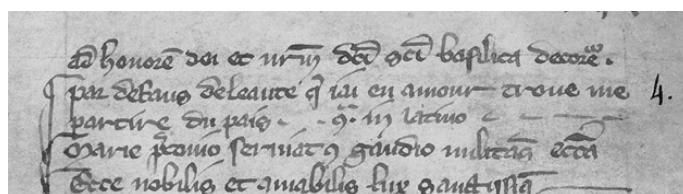 ad honorē dei et urm̄ dc̄i sc̄i basilica decore.
par defaus de leaute q̄ iai en amour trove me 4.
partire du pais . . q. in latino
Marie p̄conio serviat 9 gaudio militās ecc̄a
Ecce nobilis et amabilis lux sanctissīa